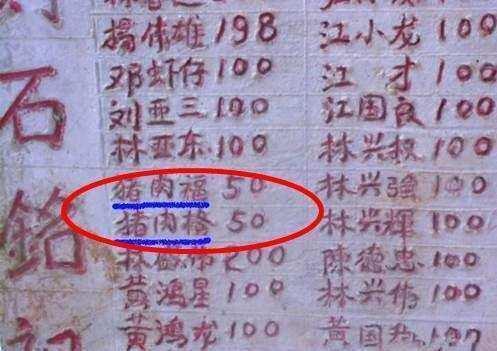 石
铭
记
杨伟雄 198 江小龙 100
邓虾仔 100 江才 100
刘亚三 100 江国良 100
林亚东 100 林兴权 100
猪肉福 50 林兴强 100
猪肉 50 林兴辉 100
林 200 陈德忠 100
黄鸿星 100 林兴伟 100
黄鸿龙 100 黄国